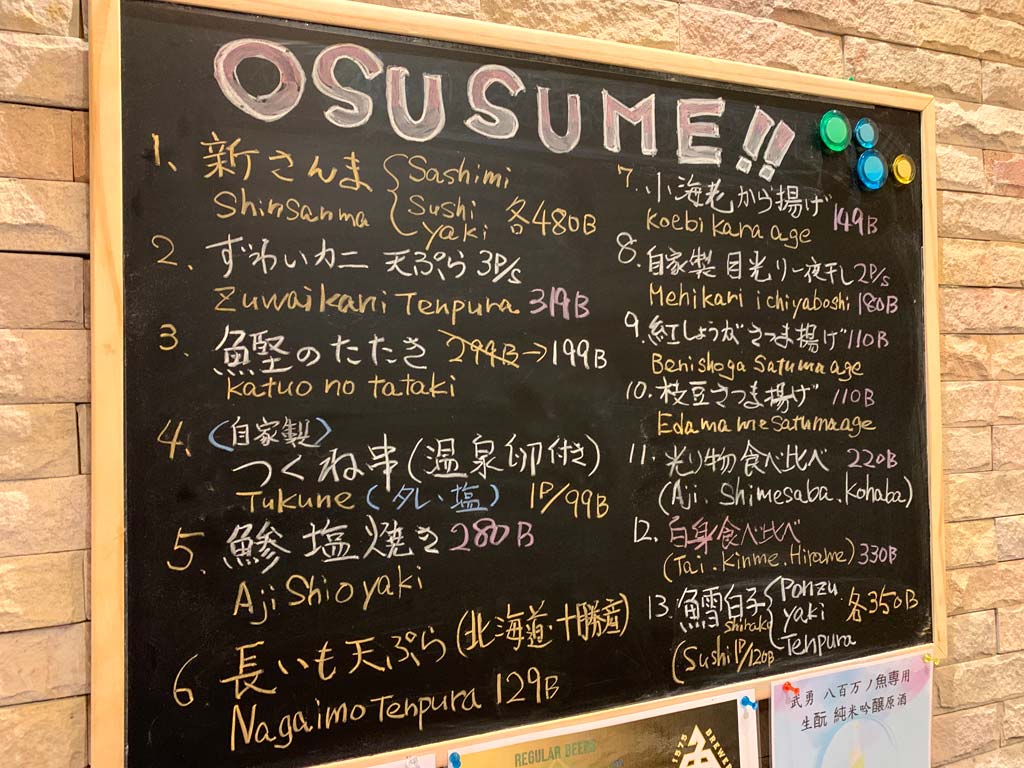 OSUSUME!!
1. 新さんま { Sashimi
Shinsanma Sushi
yaki 各480B
2. ずわいカニ 天ぷら 3P/s
Zuwaikani Tenpura 319B
3. 鰹のたたき 299B→199B
Katuo no tataki
4. (自家製)
つくね串(温泉卵付き)
Tukune (タレ・塩) 1P/99B
5. 鯵 塩焼き 280B
Aji Shioyaki
6 長いも天ぷら(北海道・十勝産)
Nagaimo Tenpura 129B
7. 小海老から揚げ
Koebi kara age 149B
8. 自家製 目光り一夜干し 2P/s
Mehikari ichiyaboshi 180B
9. 紅しょうがさつま揚げ 110B
Benishoga Satuma age
10. 枝豆さつま揚げ 110B
Edamame satumaage
11. 光り物食べ比べ 220B
(Aji. Shimesaba. Kohaba)
12. 白身食べ比べ
(Tai. Kinme. Hirame) 330B
13. 鱈白子 { Ponzu
shirako yaki 各350B
(Sushi 1P/120B Tenpura
REGULAR BEERS
1875
BREWER
武勇 八百万ノ魚専用
生酛 純米吟醸原酒